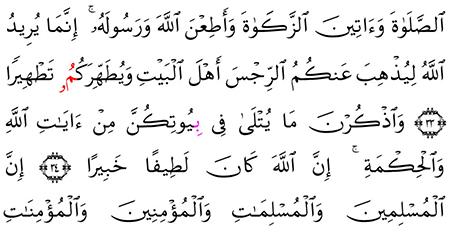 اَ۬لصَّلَوٰةَ وَءَاتِينَ اَ۬لزَّكَوٰةَ وَأَطِعْنَ اَ۬للَّهَ وَرَسُولَهُۥۚ إِنَّمَا يُرِيدُ
اُ۬للَّهُ لِيُذْهِبَ عَنكُمُ اُ۬لرِّجْسَ أَهْلَ اَ۬لْبَيْتِ وَيُطَهِّرَكُمُۥ تَطْهِيرًا
۝٣٣ وَاَذْكُرْنَ مَا يُتْلَىٰ فِى بِيُوتِكُنَّ مِنْ ءَايَٰتِ اِ۬للَّهِ
وَالْحِكْمَةِۚ إِنَّ اَ۬للَّهَ كَانَ لَطِيفًا خَبِيرًا ۝٣٤ إِنَّ
اَ۬لْمُسْلِمِينَ وَالْمُسْلِمَٰتِ وَالْمُؤْمِنِينَ وَالْمُؤْمِنَٰتِ